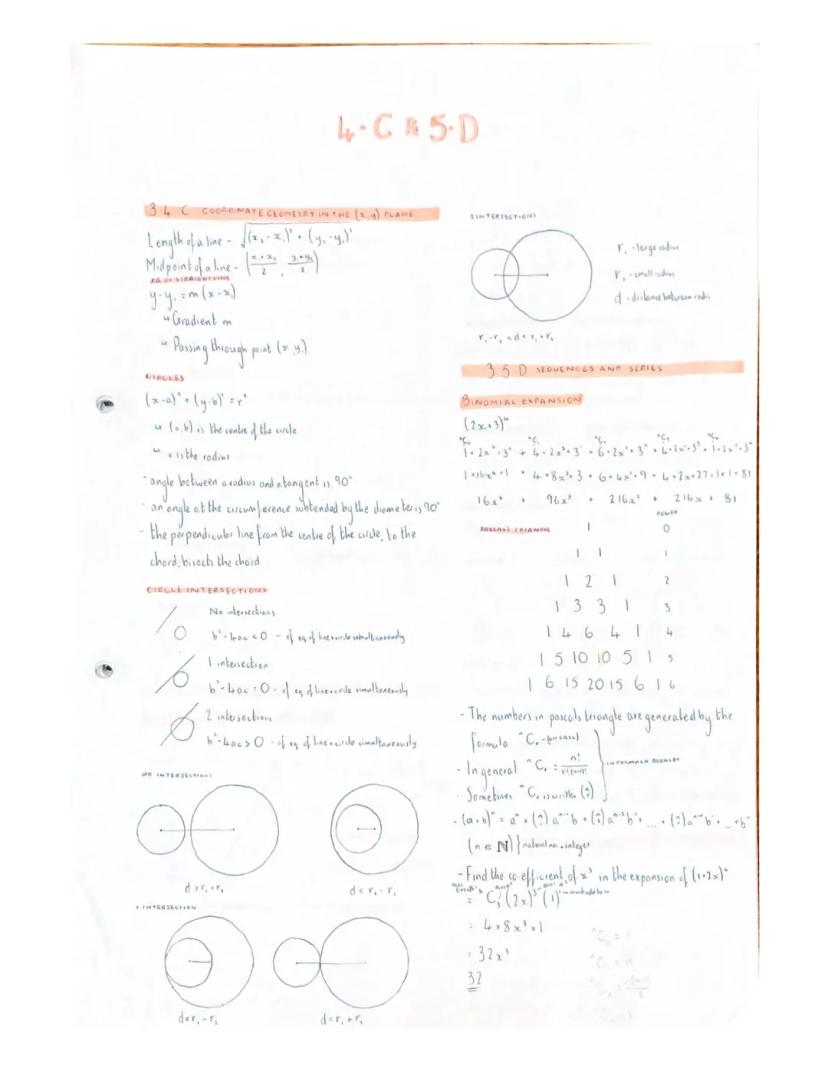 4.C & 5.D
3 4 C COORDINATE GEOMETRY IN THE (x,y) PLANE
Length of a line - √(x₂-x₁)² + (y₂-y₁)²
Midpoint of a line - (x₁+x₂/2 , y₁+y₂/2)
EQ OF STRAIGHT LINE
y-y₁ = m(x-x₁)
↳ Gradient m
↳ Passing through point (x₁ y₁)
CIRCLES
(x-a)² + (y-b)² = r²
↳ (a,b) is the centre of the circle
↳ r is the radius
- angle between a radius and a tangent is 90°
- an angle at the circumference subtended by the diameter is 90°
- the perpendicular line from the centre of the circle, to the
chord, bisects the chord
CIRCLE INTERSECTIONS
No intersections
b²-4ac < 0 - of eq of line+circle simultaneously
1 intersection
b²-4ac = 0 - of eq of line+circle simultaneously
2 intersections
b²-4ac > 0 - of eq of line+circle simultaneously
NO INTERSECTIONS
d > r₁+r₂
d < r₁-r₂
1 INTERSECTION
d = r₁-r₂
d = r₁+r₂
2 INTERSECTIONS
r₁ - large radius
r₂ - small radius
d - distance between radii
r₁-r₂ < d < r₁+r₂
3 5 D SEQUENCES AND SERIES
BINOMIAL EXPANSION
(2x+3)⁴
⁴C₀ ⁴C₁ ⁴C₂ ⁴C₃ ⁴C₄
1×2x⁴×3⁰ + 4×2x³×3¹ + 6×2x²×3² + 4×2x¹×3³ + 1×2x⁰×3⁴
1×16x⁴×1 + 4×8x³×3 + 6×4x²×9 + 4×2x×27 + 1×1×81
16x⁴ + 96x³ + 216x² + 216x + 81
PASCAL'S TRIANGLE 1 POWER 0
1 1 1
1 2 1 2
1 3 3 1 3
1 4 6 4 1 4
1 5 10 10 5 1 5
1 6 15 20 15 6 1 6
- The numbers in pascals triangle are generated by the
formula ⁿCᵣ
- In general ⁿCᵣ = n!/r!(n-r)! IN FORMULA BOOKLET
- Sometimes ⁿCᵣ is written (n r)
- (a+b)ⁿ = aⁿ + (n 1) aⁿ⁻¹b + (n 2) aⁿ⁻²b² + ... + (n r) aⁿ⁻ʳbʳ + ... + bⁿ
(n ∈ ℕ) } natural no. + integer
- Find the co-efficient of x³ in the expansion of (1+2x)⁴
= ⁴C₃ (2x)³ (1)¹
= 4×8x³×1
= 32x³
32